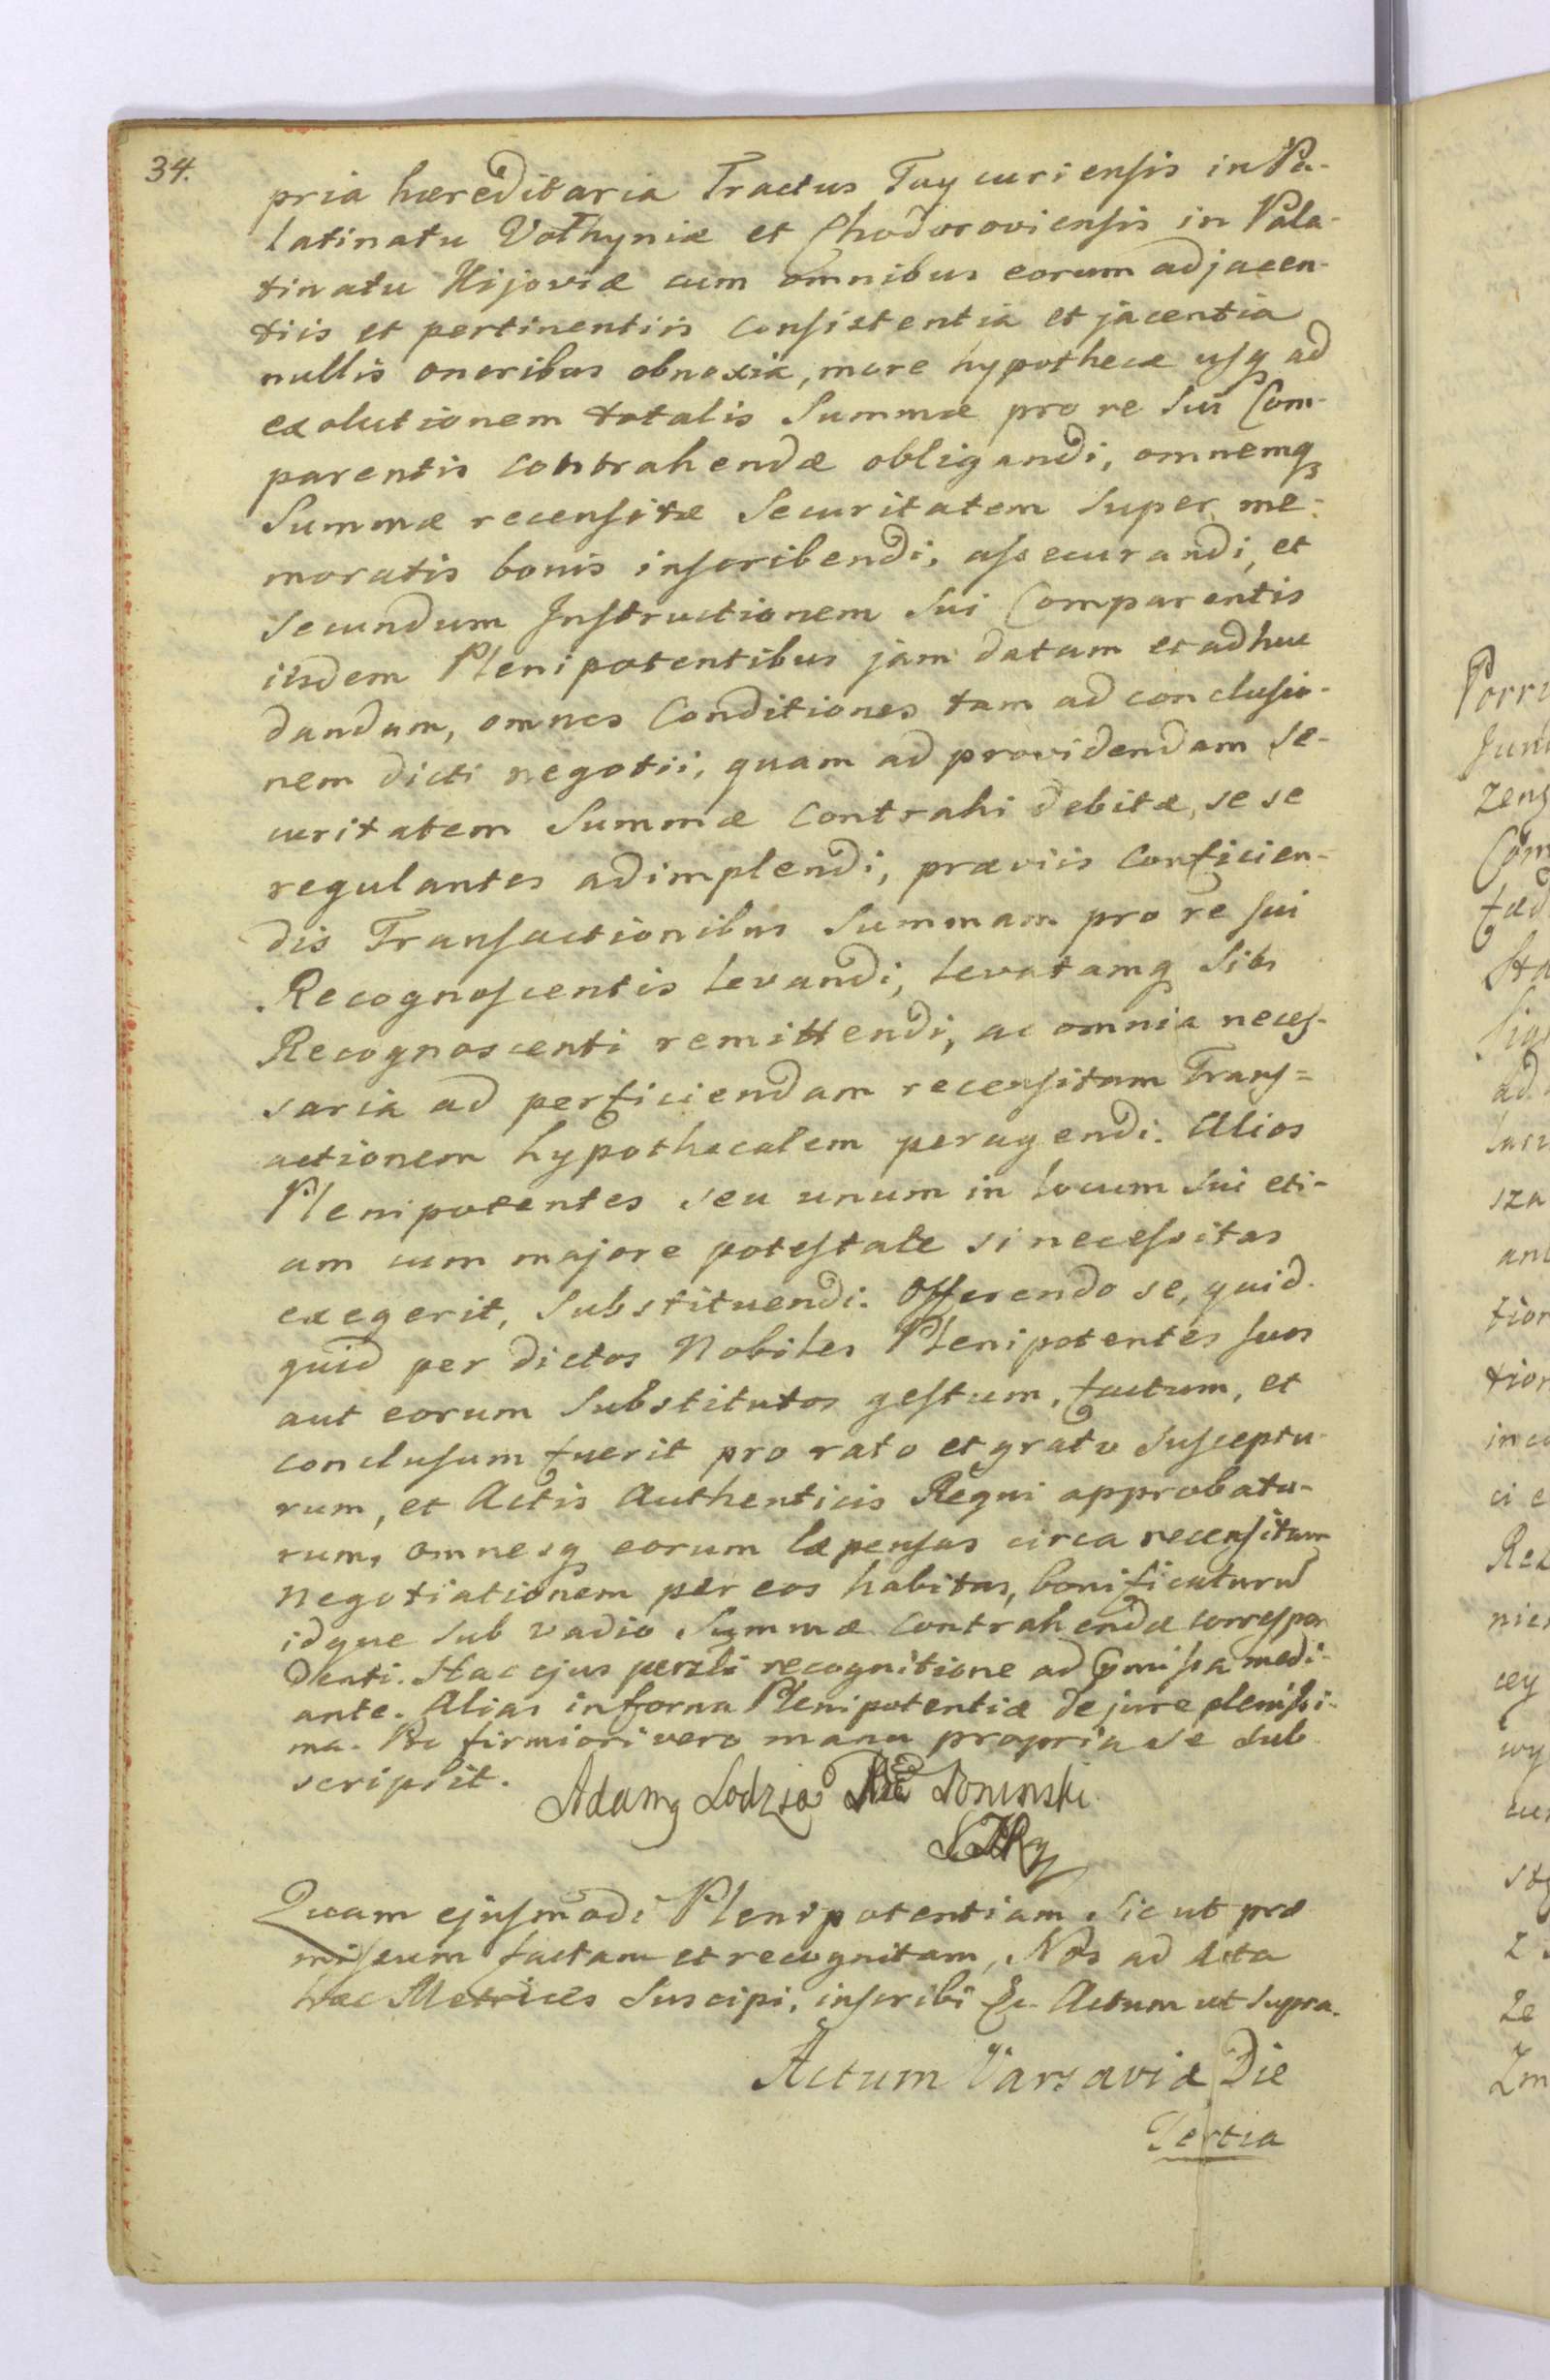 34.
pria hæreditaria Tractus Taycuriensis in Pa-
latinatu Volhyniæ et Chodoroviensis in Pala-
tinatu Kijoviæ cum omnibus eorum adjacen-
tiis et pertinentiis consistentia et jacentia
nullis oneribus obnoxia, more hypothecæ usq ad
exolutionem totalis Summæ pro re sui Com-
parentis contrahendæ obligandi, omnemq
Summæ recensitæ Securitatem super me-
moratis bonis inscribendi, assecurandi, et
secundum Instructionem sui Comparentis
iisdem Plenipotentibus jam datam et adhuc
dandam, omnes Conditiones tam ad conclusio-
nem dicti negotii, quam ad providendam se-
curitatem Summæ contrahi debitæ, se se
regulantes adimplendi, præviis conficien-
dis Transactionibus Summam pro re sui
Recognoscentis levandi, levatamq sibi
Recognoscenti remittendi, ac omnia neces-
saria ad perficiendam recensitam Trans=
actionem hypothecalem peragendi. Alios
Plenipotentes seu unum in locum sui eti-
am cum majore potestate si necessitas
exegerit, substituendi. Offerendo se, quid-
quid per dictos Nobiles Plenipotentes suos
aut eorum substitutos gestum, factum, et
conclusum fuerit pro rato et grato susceptu-
rum, et Actis Authenticis Regni approbatu-
rum, omnesq eorum Expensas circa recensitam
negotiationem per eos habitas, bonificaturum
idque sub vadio Summæ contrahendæ correspon
denti. Hac ejus recognitione ad præmissa medi-
ante. Alias in forma Plenipotentiæ de jure plenissi-
ma. Pro firmiori vero manu propria se sub
scripsit.
Adamq Lodzia Poninski
Quam ejusmodi Plenipotentiam sic ut præ
missum factam et recognitam, Nos ad Acta
hæc Metrices suscipi, inscribi &c. Actum ut supra.
Actum Varsaviæ Die
Tertia
Porr
zeng
sza
Rez
ze